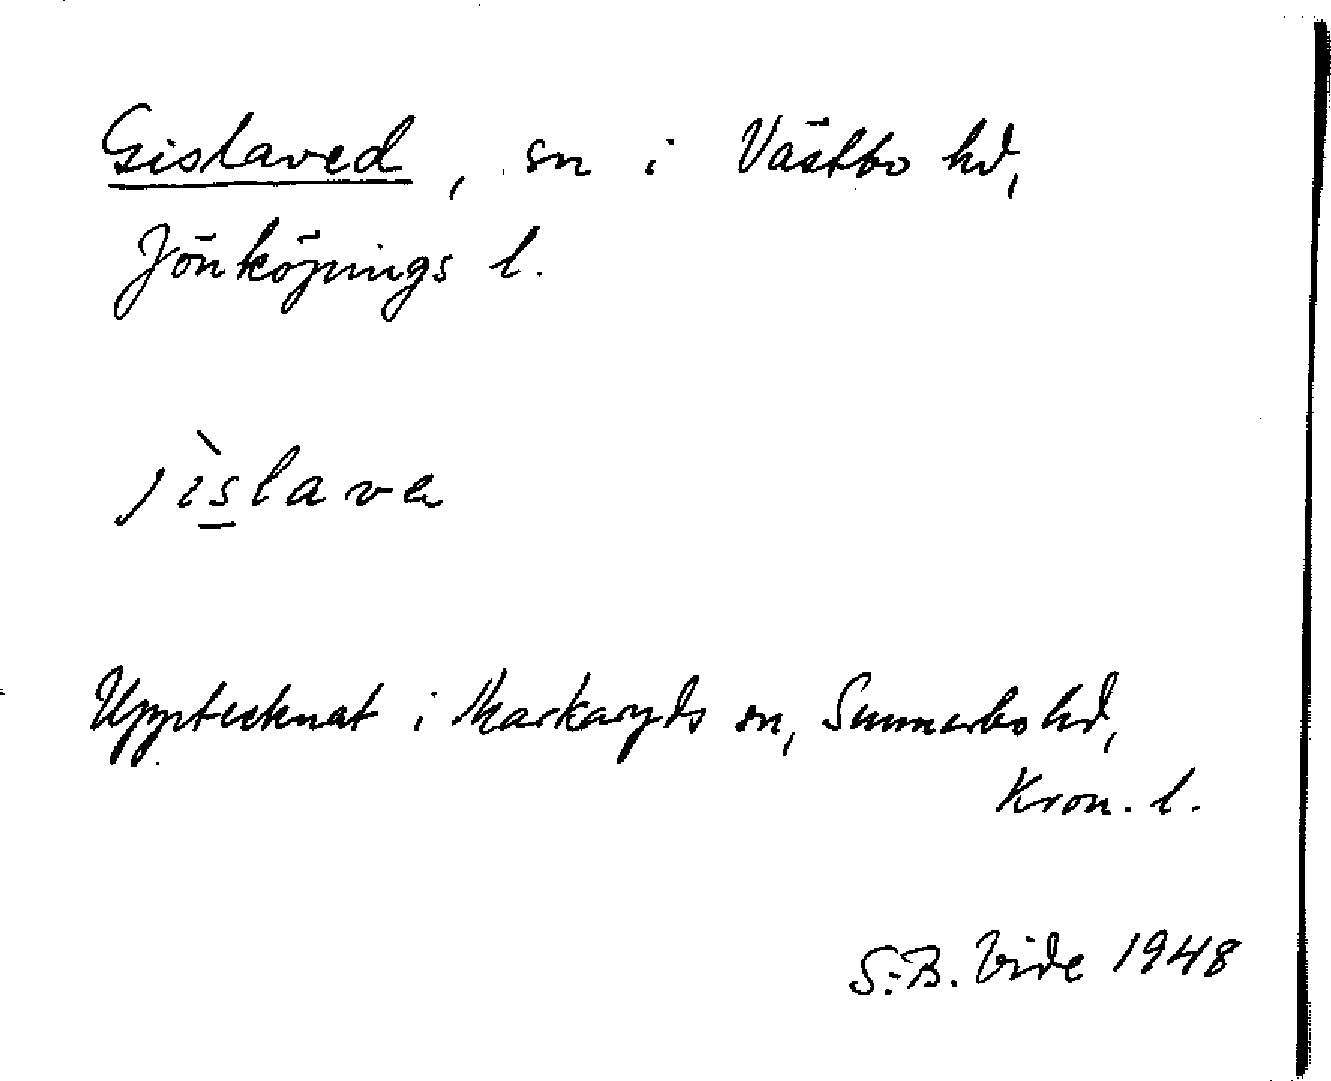 Gislaved, sn i Västbo hd,
Jönköpings l.
jìslava
Upptecknat i Markaryds sn, Sunnerbo hd,
Kron. l.
S.-B. Vide 1948